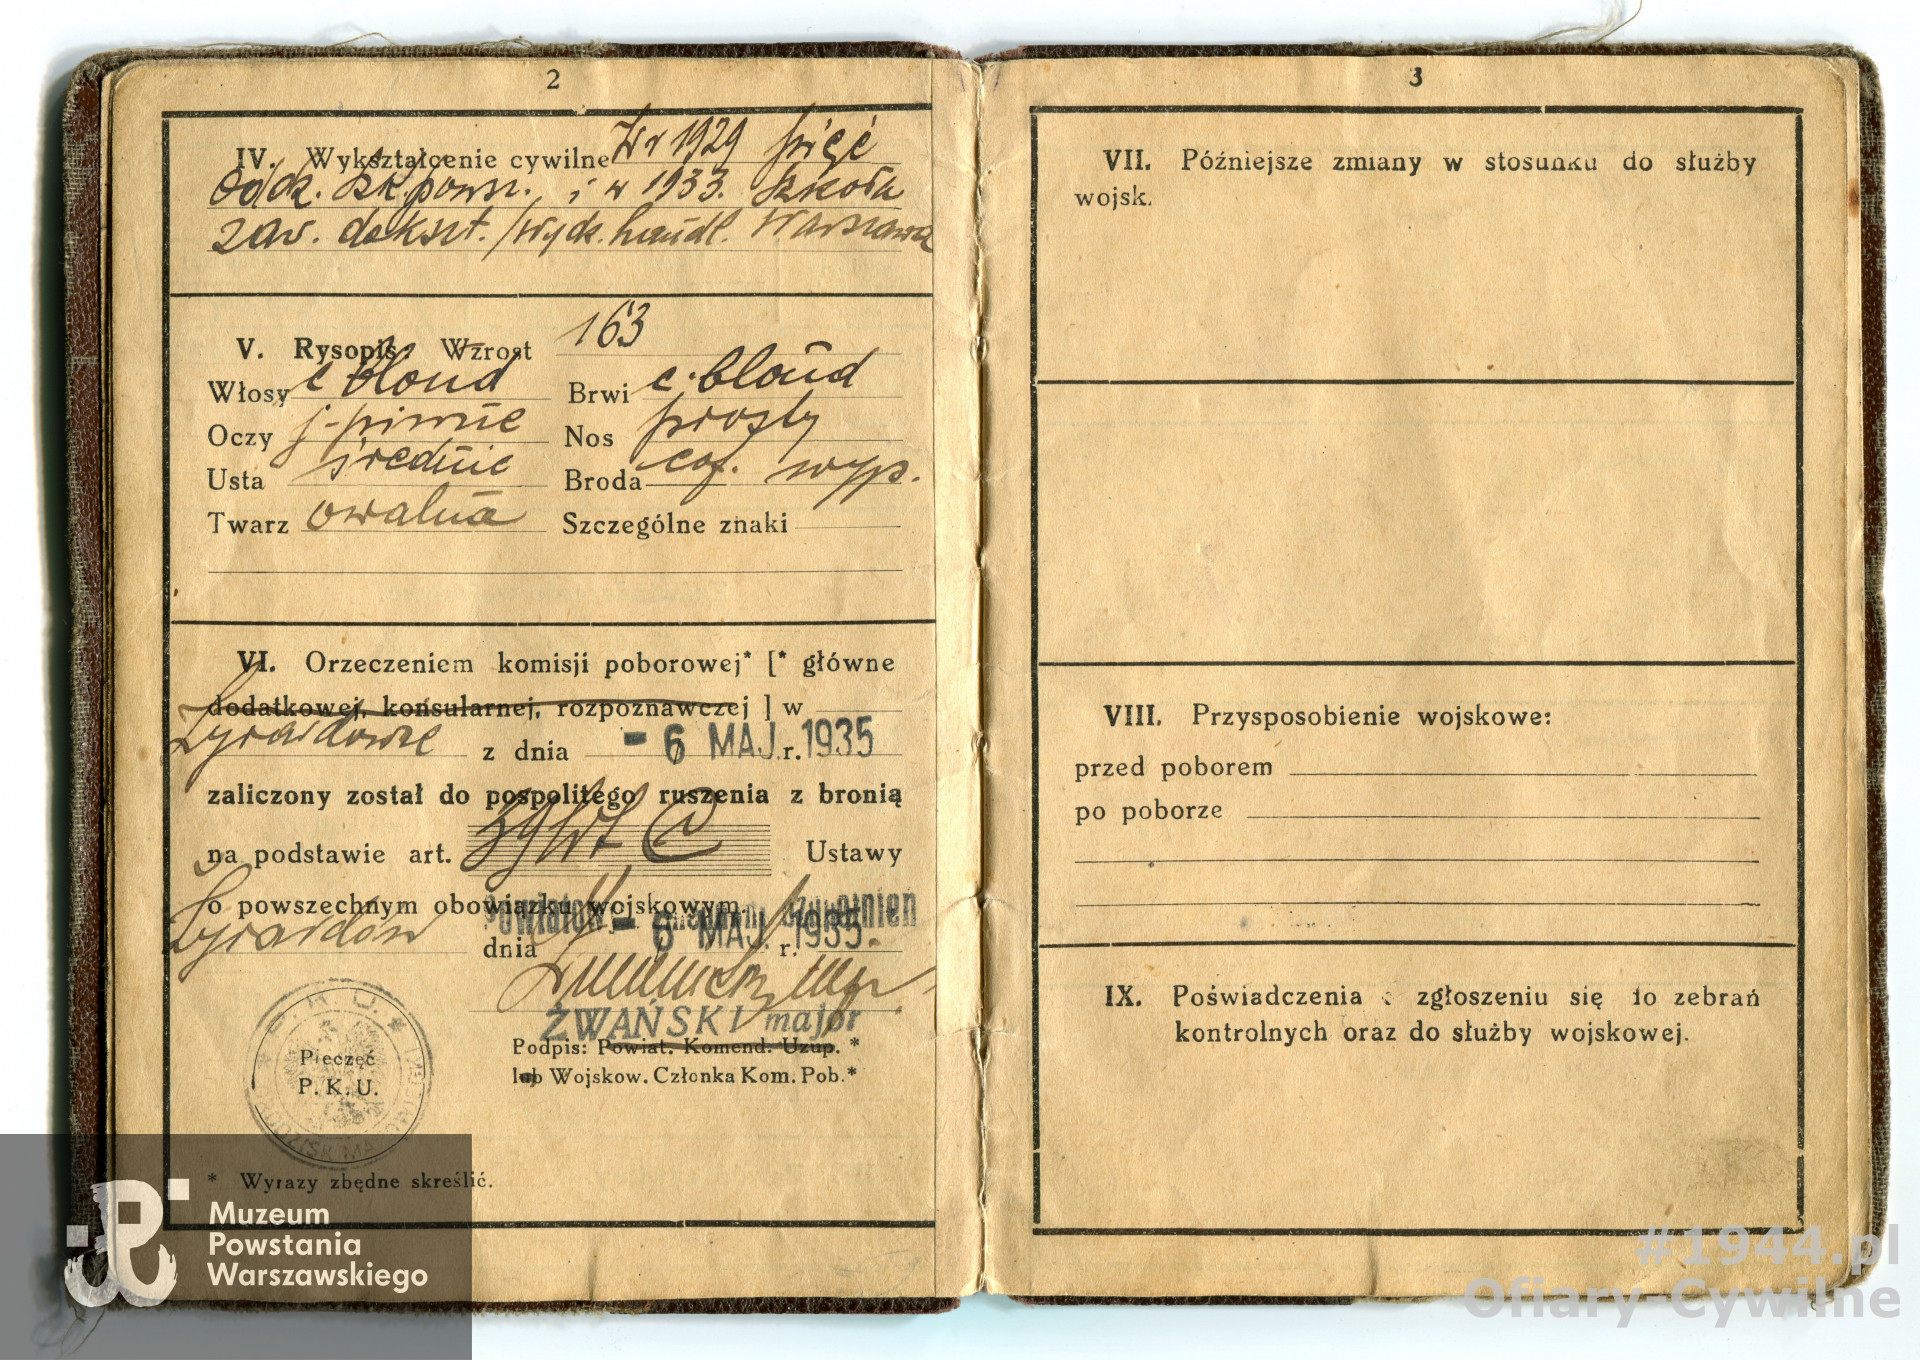 2
IV. Wykształcenie cywilne W r 1929 pięć
oddz. szk. powsz. i w 1933. szkoła
zaw. dokszt. /wydz. handl. Warszawa
V. Rysopis: Wzrost 163
Włosy c blond Brwi c. blond
Oczy j-piwne Nos prosty
Usta średnie Broda wyp.
Twarz owalna Szczególne znaki
VI. Orzeczeniem komisji poborowej* [* główne
dodatkowej, konsularnej, rozpoznawczej ] w
Żyrardowie z dnia - 6 MAJ. r. 1935
zaliczony został do pospolitego ruszenia z bronią
na podstawie art. Ustawy
o powszechnym obowiązku wojskowym.
Żyrardów dnia - 6 MAJ. r. 1935.
ŻWAŃSKI major
Podpis: Powiat. Komend. Uzup. *
lub Wojskow. Członka Kom. Pob.*
Pieczęć
P. K. U.
* Wyrazy zbędne skreślić.
3
VII. Późniejsze zmiany w stosunku do służby
wojsk.
VIII. Przysposobienie wojskowe:
przed poborem
po poborze
IX. Poświadczenia o zgłoszeniu się do zebrań
kontrolnych oraz do służby wojskowej.
Muzeum
Powstania
Warszawskiego
#1944.pl
Ofiary Cywilne